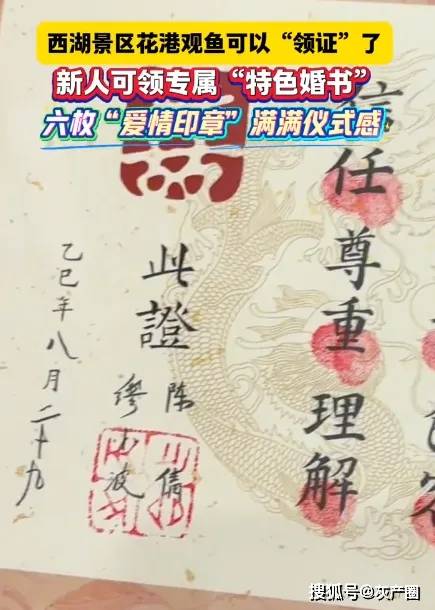 西湖景区花港观鱼可以“领证”了
新人可领专属“特色婚书”
六枚“爱情印章”满满仪式感
信任尊重理解
此證
陈倩
缪小波
乙巳年八月二十九
搜狐号@灰产圈